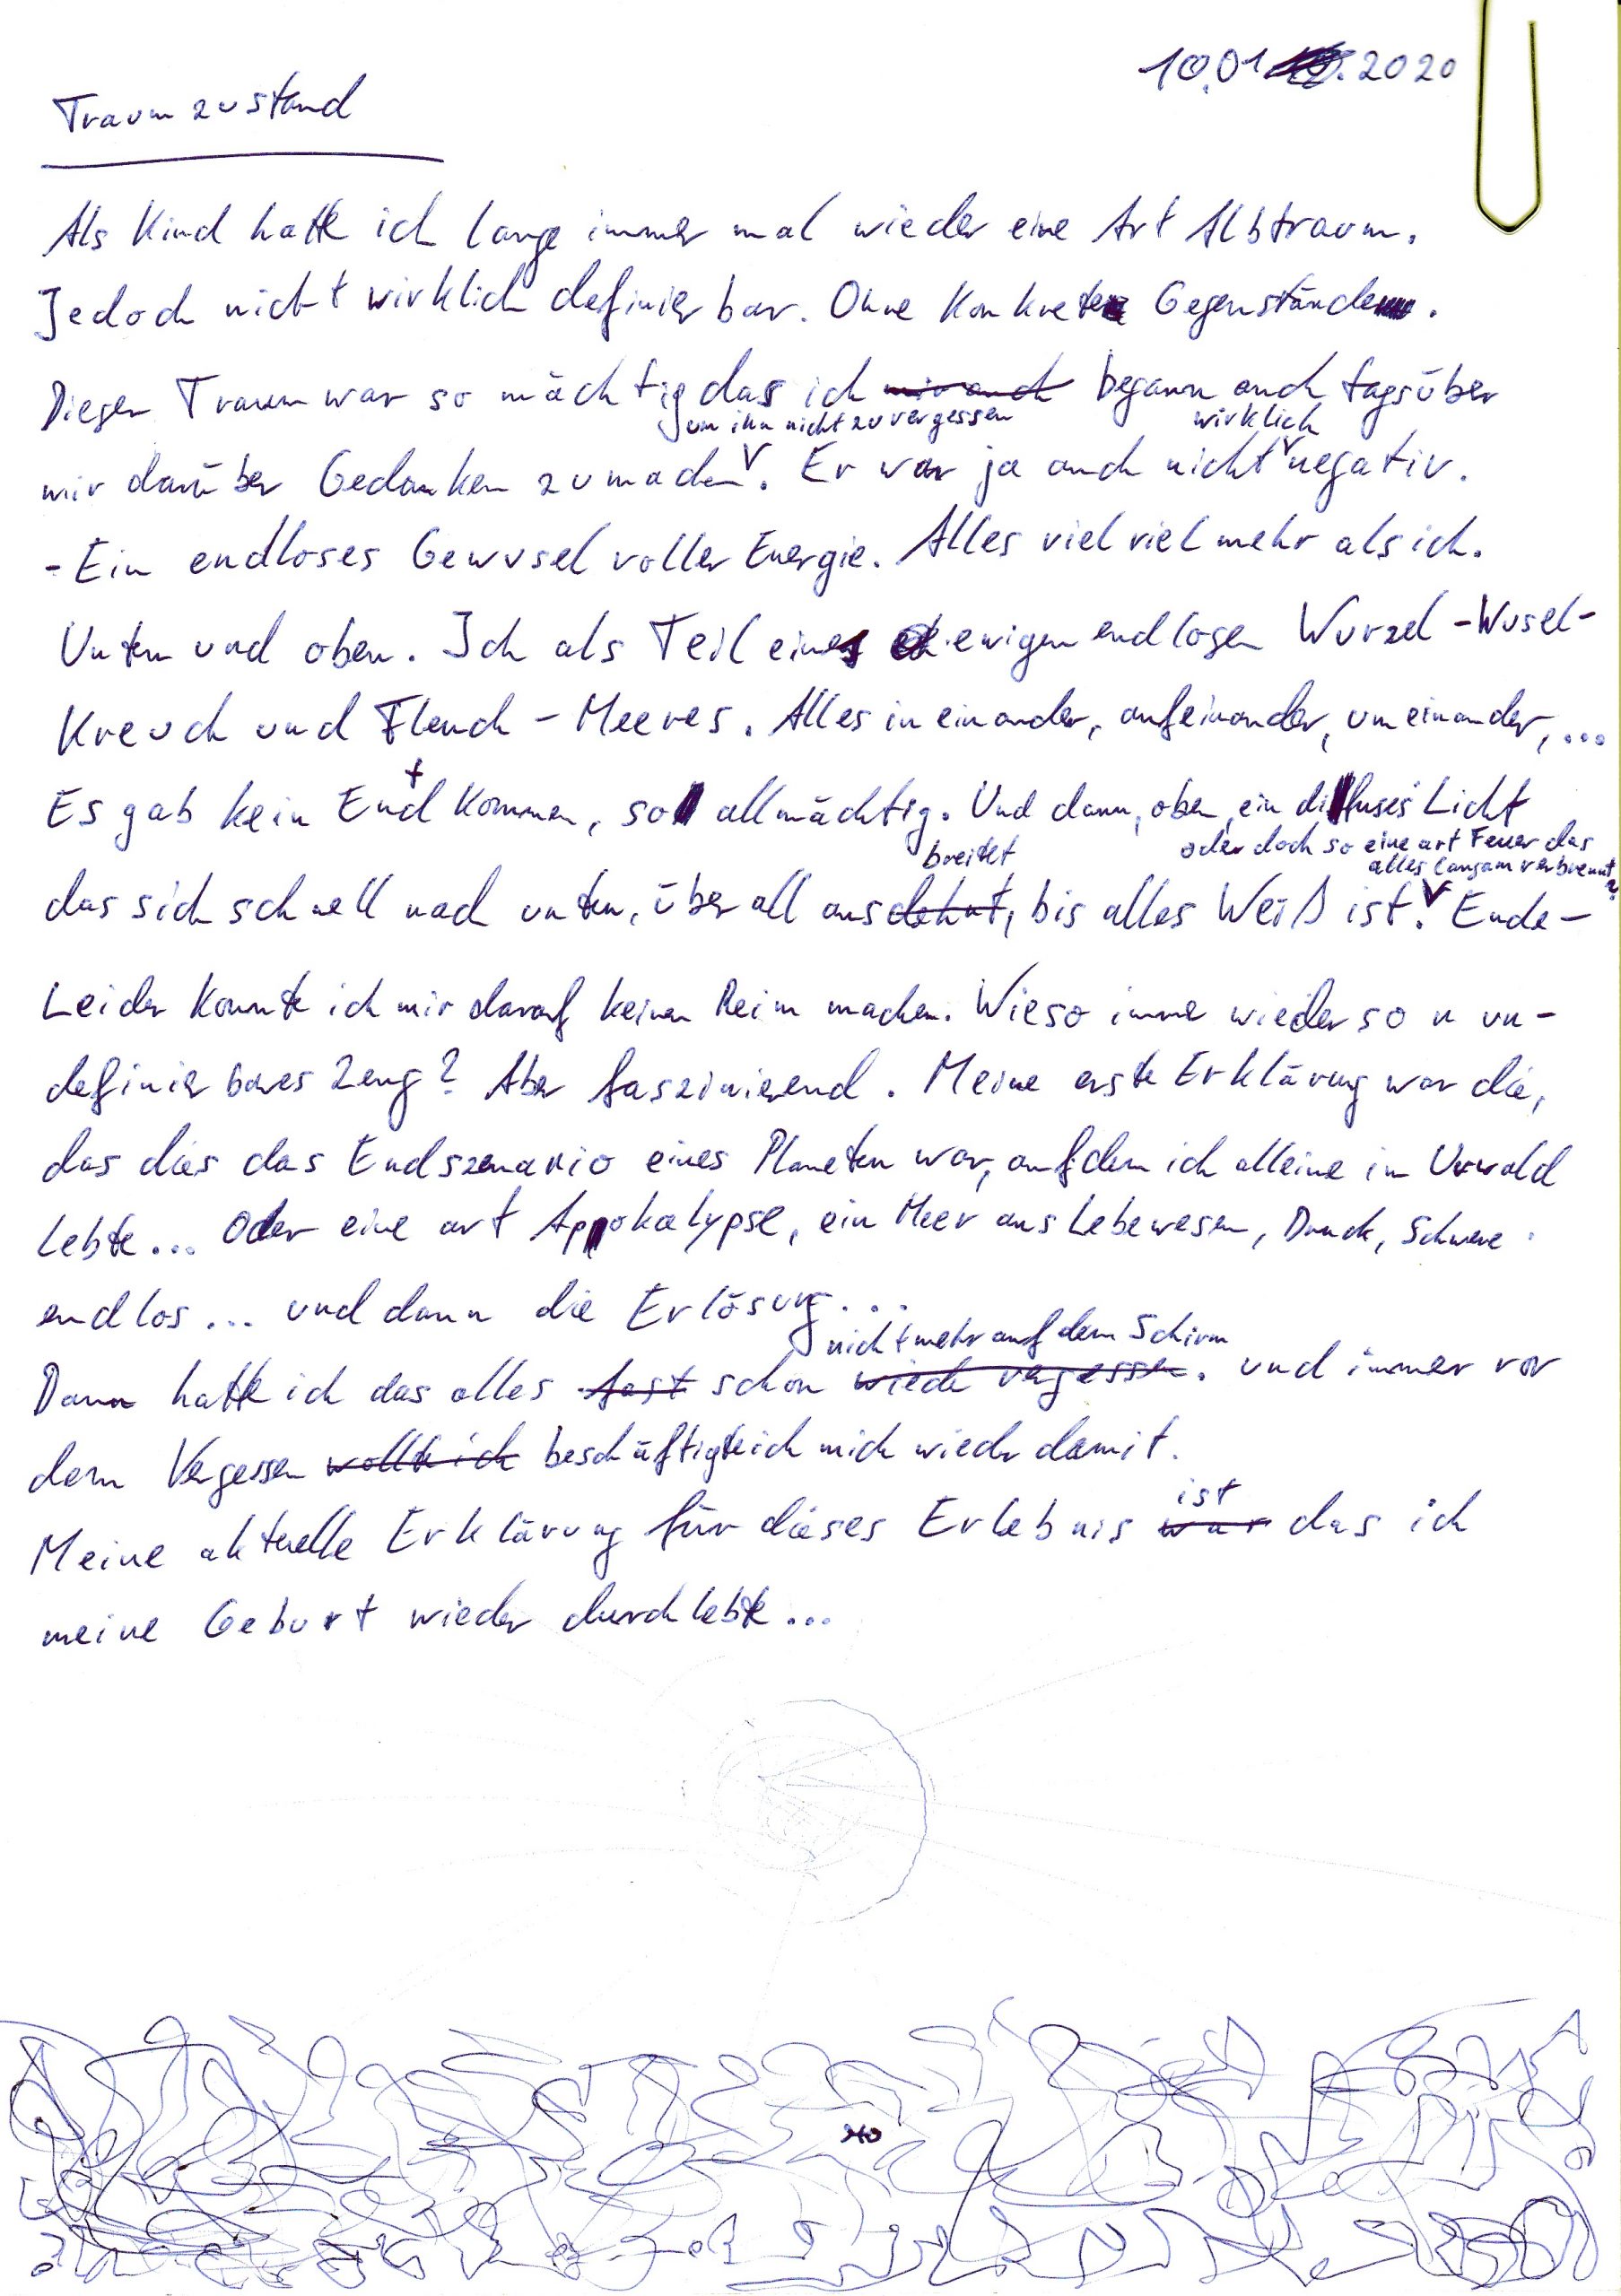 10.01.2020
Traumzustand
Als Kind hatte ich lange immer mal wieder eine Art Albtraum.
Jedoch nicht wirklich definierbar. Ohne Konkrete Gegenstände.
Dieser Traum war so mächtig das ich mir auch begann auch tagsüber
um ihn nicht zu vergessen wirklich
mir darüber Gedanken zu machen. Er war ja auch nicht negativ.
- Ein endloses Gewusel voller Energie. Alles viel viel mehr als ich.
Unten und oben. Ich als Teil eines ewigen endlosen Wurzel-Wusel-
Kreuch und Fleuch-Meeres. Alles in einander, aufeinander, umeinander, ...
Es gab kein Entkommen, so allmächtig. Und dann, oben, ein diffuses Licht
oder doch so eine art Feuer das
breitet alles langsam verbrennt?
das sich schnell nach unten, überall ausdehnt, bis alles Weiß ist. Ende-
Leider konnte ich mir darauf keinen Reim machen. Wieso imme wieder so n un-
definierbares Zeug? Aber faszinierend. Meine erste Erklärung war die,
das dies das Endszenario eines Planeten war, auf dem ich alleine im Urwald
lebte... Oder eine art Appokalypse, ein Meer aus Lebewesen, Druck, Schwere
endlos... und dann die Erlösung...
nicht mehr auf dem Schirm
Dann hatte ich das alles fast schon wieder vergessen. und immer vor
dem Vergessen wollte ich beschäftigte ich mich wieder damit.
ist
Meine aktuelle Erklärung für dieses Erlebnis war das ich
meine Geburt wieder durchlebte...